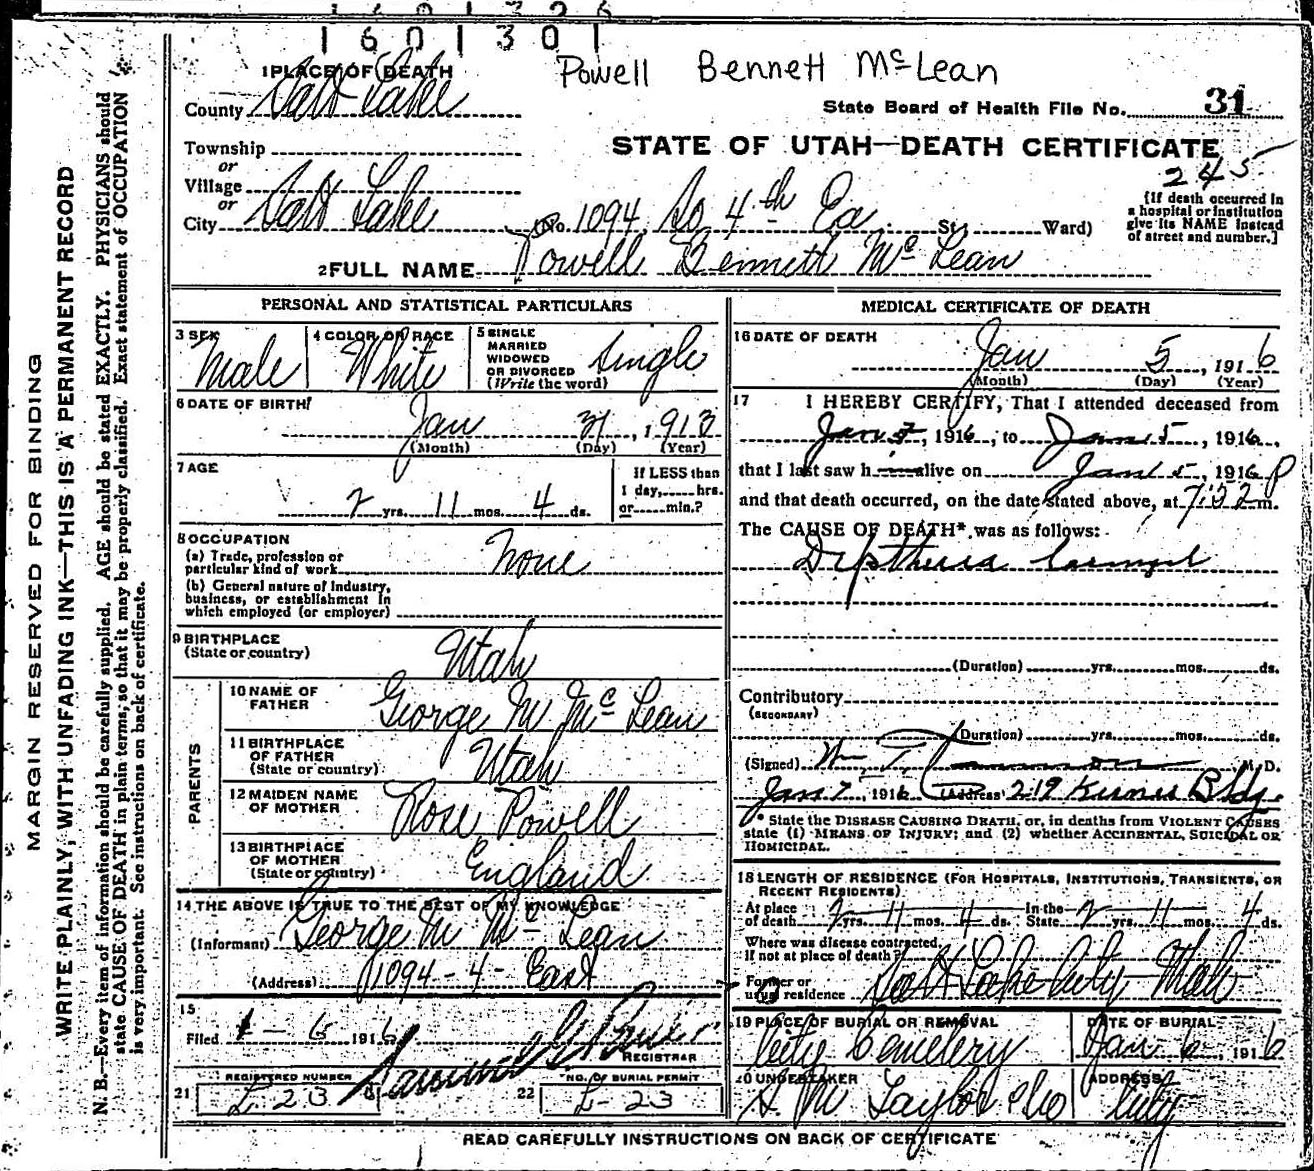 1601301
Powell Bennett McLean
1 PLACE OF DEATH
County Salt Lake
State Board of Health File No. 31
Township
STATE OF UTAH—DEATH CERTIFICATE
245
or
Village
or
City Salt Lake (No. 1094 So 4th Ea St; Ward)
[If death occurred in
a hospital or institution
give its NAME instead
of street and number.]
2 FULL NAME Powell Bennett McLean
PERSONAL AND STATISTICAL PARTICULARS
3 SEX Male
4 COLOR OR RACE White
5 SINGLE
MARRIED
WIDOWED
OR DIVORCED
(Write the word) Single
6 DATE OF BIRTH
Jan 31, 1913
(Month) (Day) (Year)
7 AGE
2 yrs. 11 mos. 4 ds.
If LESS than
1 day, hrs.
or min.?
8 OCCUPATION
(a) Trade, profession or
particular kind of work None
(b) General nature of industry,
business, or establishment in
which employed (or employer)
9 BIRTHPLACE
(State or country) Utah
PARENTS
10 NAME OF
FATHER George M McLean
11 BIRTHPLACE
OF FATHER
(State or country) Utah
12 MAIDEN NAME
OF MOTHER Rose Powell
13 BIRTHPLACE
OF MOTHER
(State or country) England
14 THE ABOVE IS TRUE TO THE BEST OF MY KNOWLEDGE
(Informant) George M McLean
(Address) 1094 - 4 - East
15
Filed 1 - 6 1916
REGISTRAR
REGISTERED NUMBER
21 L 23
NO. OF BURIAL PERMIT
22 L-23
MEDICAL CERTIFICATE OF DEATH
16 DATE OF DEATH
Jan 5, 1916
(Month) (Day) (Year)
17 I HEREBY CERTIFY, That I attended deceased from
Jan, 1916, to Jan 5, 1916,
that I last saw h alive on Jan 5, 1916
and that death occurred, on the date stated above, at 7:22 P m.
The CAUSE OF DEATH* was as follows:
Diptheria
(Duration) yrs. mos. ds.
Contributory
(SECONDARY)
(Duration) yrs. mos. ds.
(Signed) Wm T M. D.
Jan 7, 1916 (Address) 219 Bldg.
* State the DISEASE CAUSING DEATH, or, in deaths from VIOLENT CAUSES
state (1) MEANS OF INJURY; and (2) whether ACCIDENTAL, SUICIDAL OR
HOMICIDAL.
18 LENGTH OF RESIDENCE (FOR HOSPITALS, INSTITUTIONS, TRANSIENTS, OR
RECENT RESIDENTS)
At place
of death 2 yrs. 11 mos. 4 ds. In the
State 2 yrs. 11 mos. 4 ds.
Where was disease contracted,
if not at place of death?
Former or
usual residence Salt Lake City Utah
19 PLACE OF BURIAL OR REMOVAL
City Cemetery
DATE OF BURIAL
Jan 6, 1916
20 UNDERTAKER
S M Taylor & Co
ADDRESS
City
READ CAREFULLY INSTRUCTIONS ON BACK OF CERTIFICATE
MARGIN RESERVED FOR BINDING
WRITE PLAINLY, WITH UNFADING INK—THIS IS A PERMANENT RECORD
N. B.—Every item of information should be carefully supplied. AGE should be stated EXACTLY. PHYSICIANS should
state CAUSE OF DEATH in plain terms, so that it may be properly classified. Exact statement of OCCUPATION
is very important. See instructions on back of certificate.